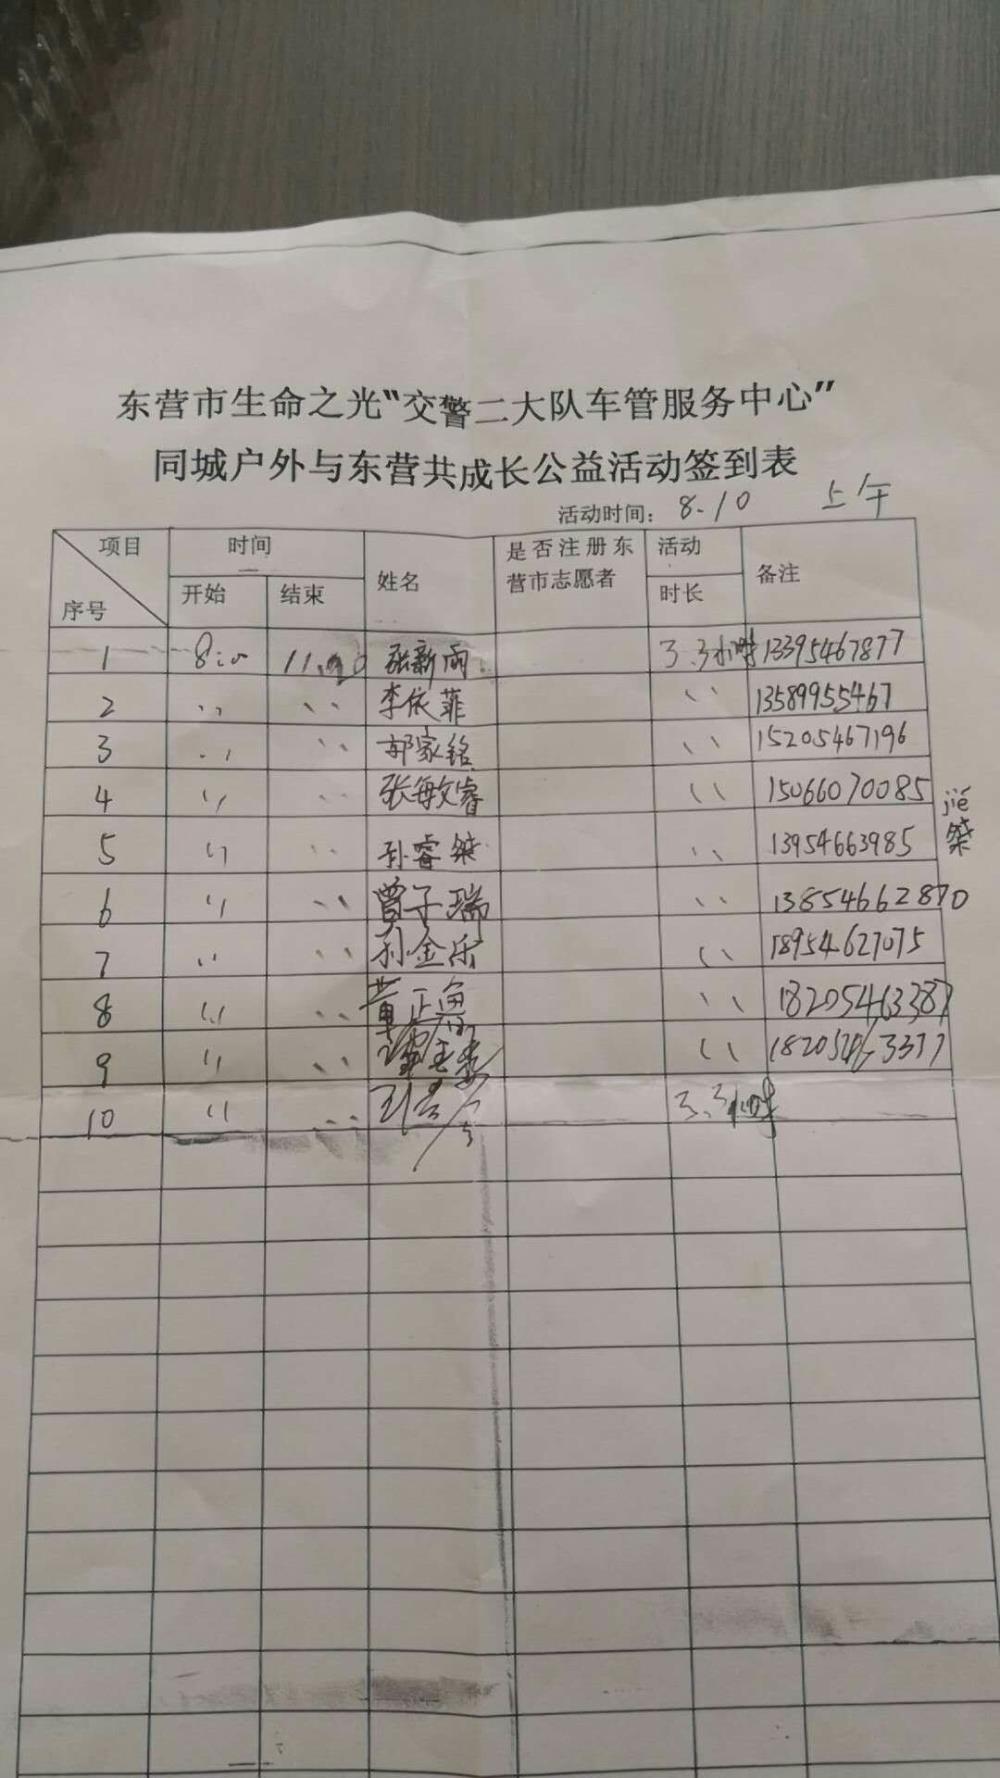 东营市生命之光“交警二大队车管服务中心”
同城户外与东营共成长公益活动签到表
活动时间: 8.10 上午
项目 时间 姓名 是否注册东营市志愿者 活动时长 备注
序号 开始 结束
1 8:00 张新雨 3.3小时 13395467877
2 〃 〃 李依菲 〃 13589955467
3 〃 〃 郭家铭 〃 15205467196
4 〃 〃 张敏睿 〃 15066070085
jié
桀
5 〃 〃 孙睿桀 〃 13954663985
6 〃 〃 曾子瑞 〃 13854662870
7 〃 〃 孙金乐 〃 18954627075
8 〃 〃 〃 18205463387
9 〃 〃 〃
10 〃 〃 3.3小时